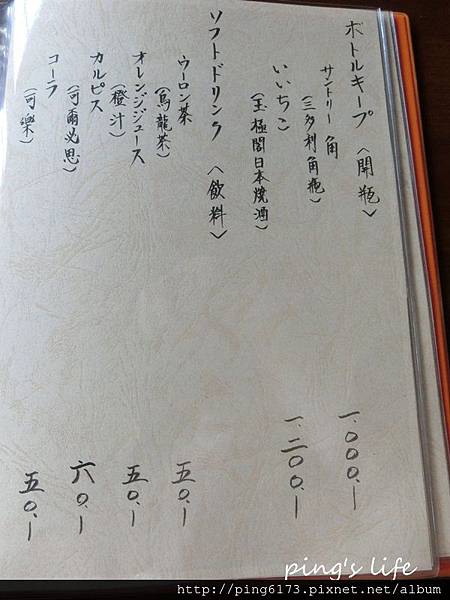 ボトルキープ〈開瓶〉
サントリー 角
(三多利角瓶) 一.000.-
いいちこ
(玉極閣日本燒酒) 一.二00.-
ソフトドリンク〈飲料〉
ウーロン茶
(烏龍茶) 五0.-
オレンジジュース
(橙汁) 五0.-
カルピス
(可爾必思) 六0.-
コーラ
(可樂) 五0.-
ping's life
http://ping6173.pixnet.net/album